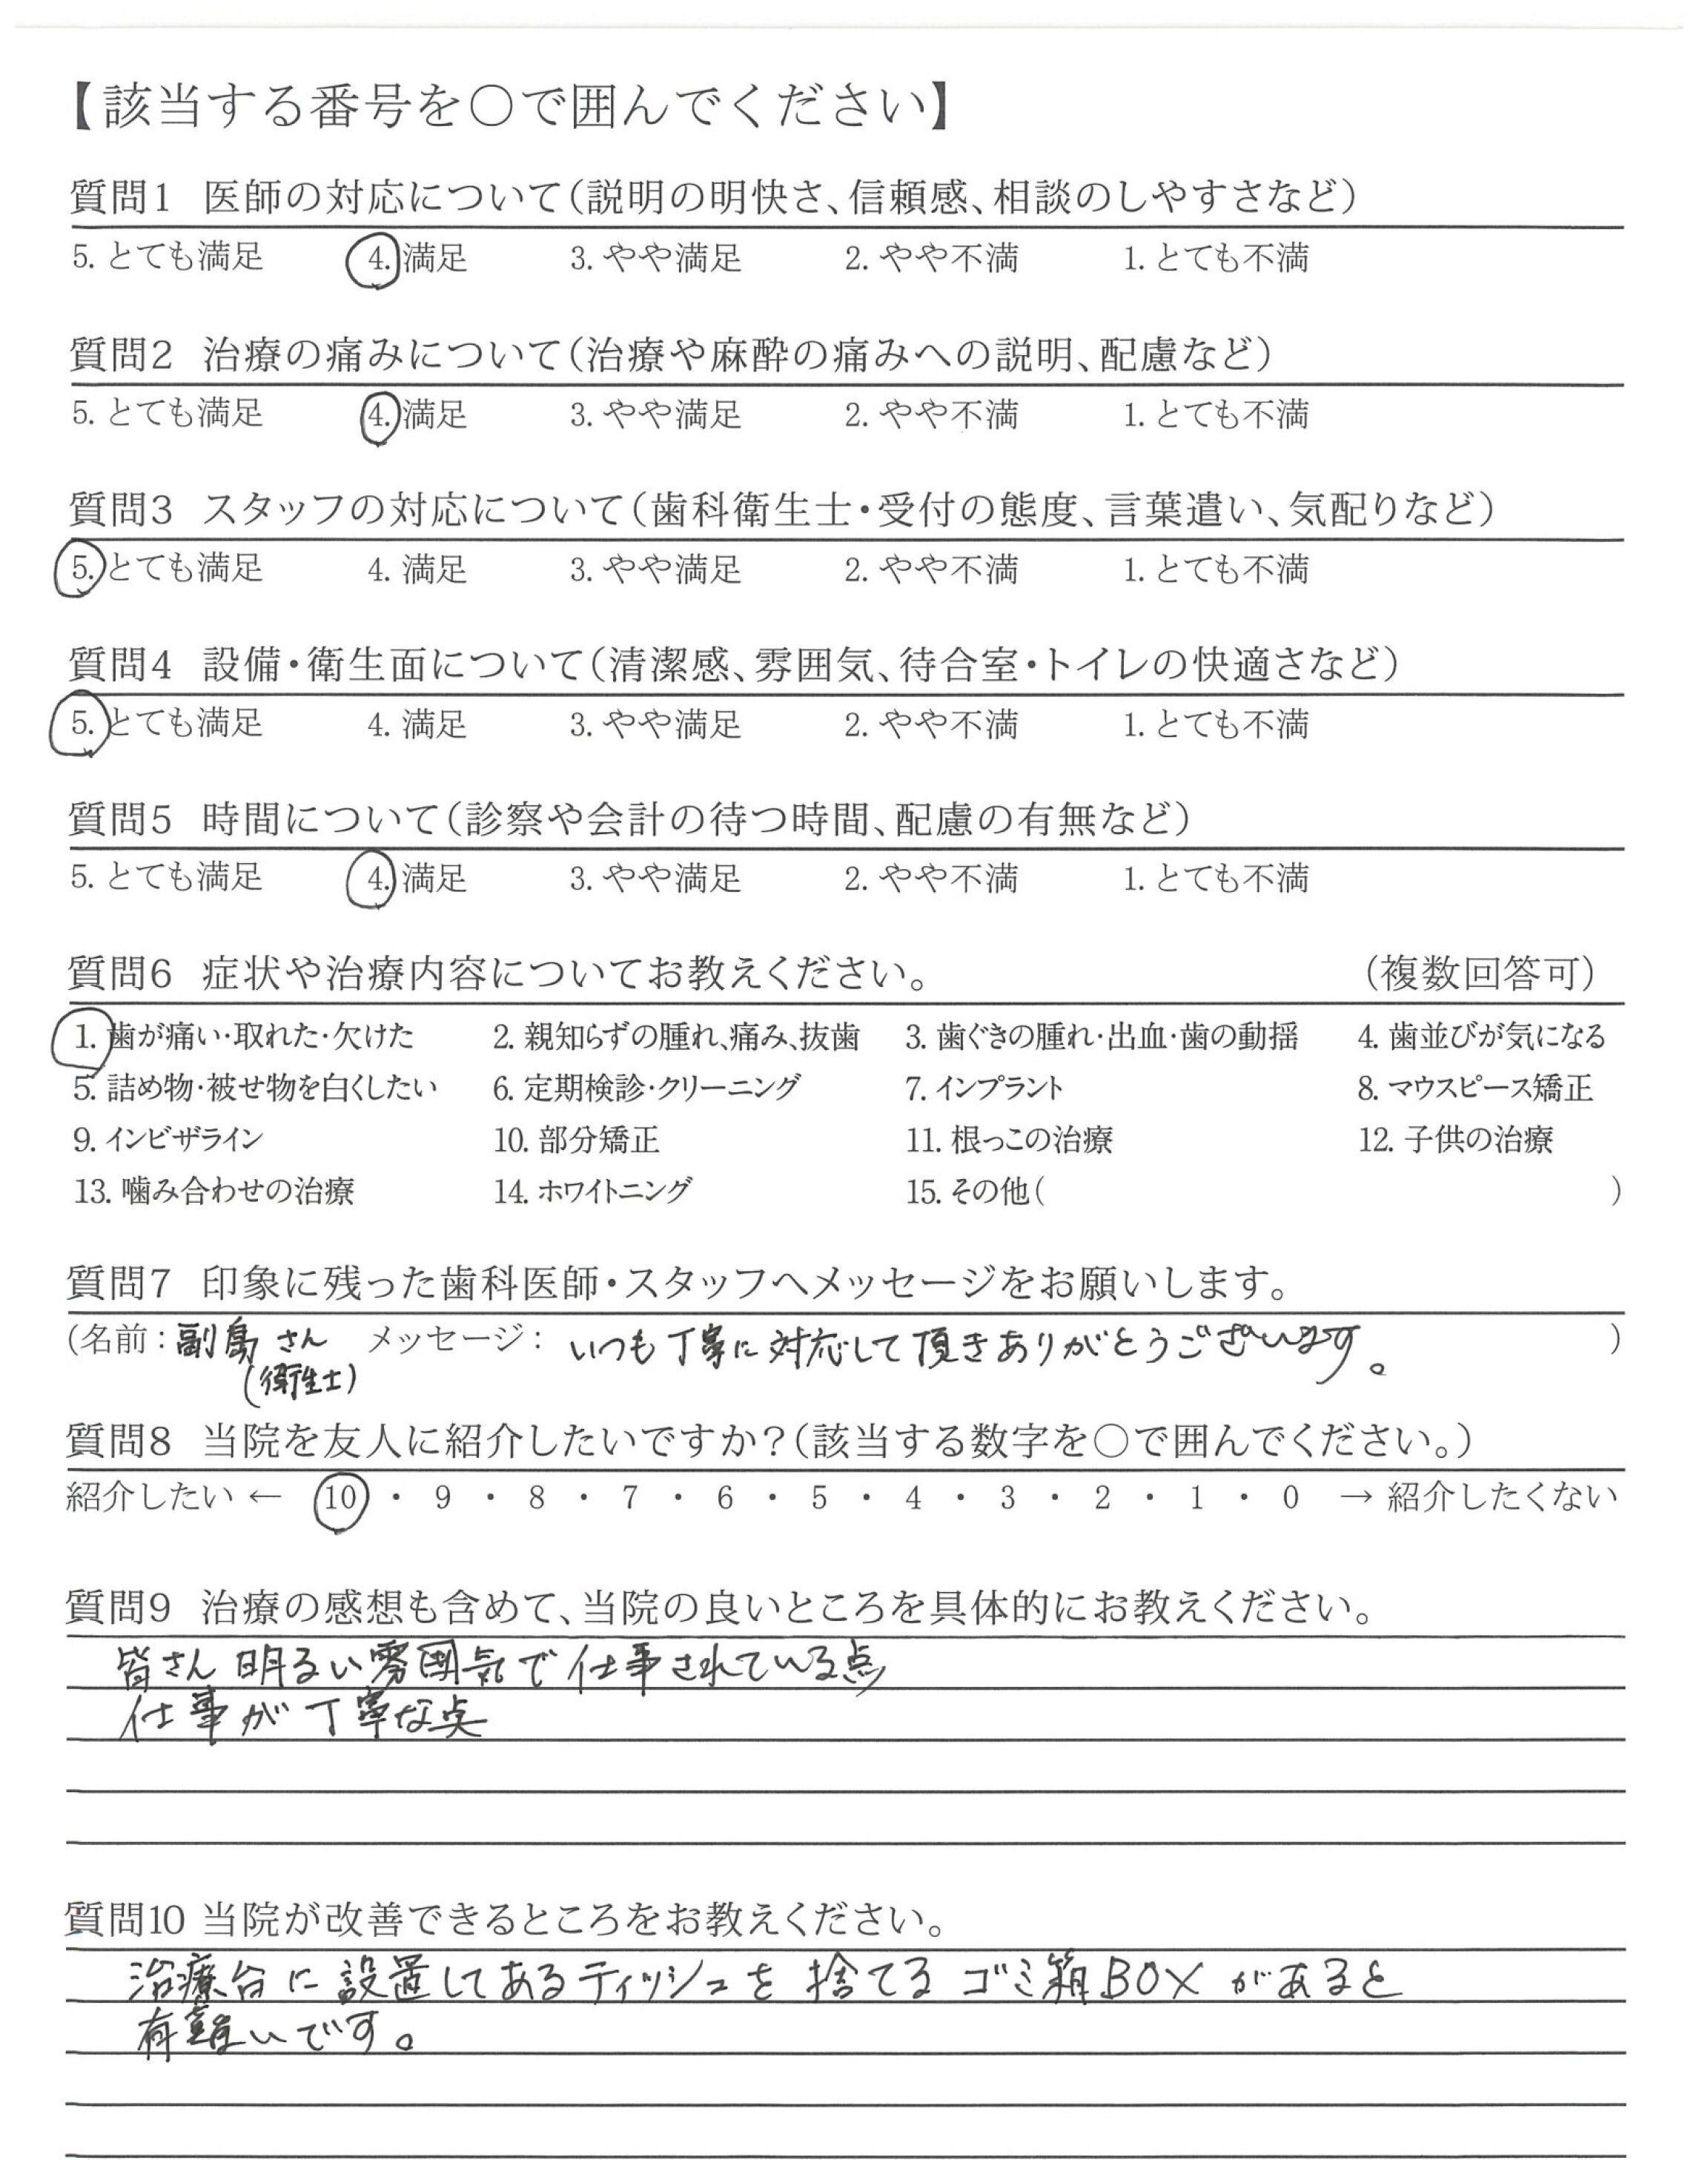 【該当する番号を○で囲んでください】
質問1 医師の対応について(説明の明快さ、信頼感、相談のしやすさなど)
5. とても満足 4. 満足 3. やや満足 2. やや不満 1. とても不満
質問2 治療の痛みについて(治療や麻酔の痛みへの説明、配慮など)
5. とても満足 4. 満足 3. やや満足 2. やや不満 1. とても不満
質問3 スタッフの対応について(歯科衛生士・受付の態度、言葉遣い、気配りなど)
5. とても満足 4. 満足 3. やや満足 2. やや不満 1. とても不満
質問4 設備・衛生面について(清潔感、雰囲気、待合室・トイレの快適さなど)
5. とても満足 4. 満足 3. やや満足 2. やや不満 1. とても不満
質問5 時間について(診察や会計の待つ時間、配慮の有無など)
5. とても満足 4. 満足 3. やや満足 2. やや不満 1. とても不満
質問6 症状や治療内容についてお教えください。 (複数回答可)
1. 歯が痛い・取れた・欠けた 2. 親知らずの腫れ、痛み、抜歯 3. 歯ぐきの腫れ・出血・歯の動揺 4. 歯並びが気になる
5. 詰め物・被せ物を白くしたい 6. 定期検診・クリーニング 7. インプラント 8. マウスピース矯正
9. インビザライン 10. 部分矯正 11. 根っこの治療 12. 子供の治療
13. 噛み合わせの治療 14. ホワイトニング 15. その他( )
質問7 印象に残った歯科医師・スタッフへメッセージをお願いします。
(名前：副島さん メッセージ：いつも丁寧に対応して頂きありがとうございます。 )
(衛生士)
質問8 当院を友人に紹介したいですか?(該当する数字を○で囲んでください。)
紹介したい ← 10 ・ 9 ・ 8 ・ 7 ・ 6 ・ 5 ・ 4 ・ 3 ・ 2 ・ 1 ・ 0 → 紹介したくない
質問9 治療の感想も含めて、当院の良いところを具体的にお教えください。
皆さん明るい雰囲気で仕事されている点
仕事が丁寧な点
質問10 当院が改善できるところをお教えください。
治療台に設置してあるティッシュを捨てるゴミ箱BOXがあると
有難いです。